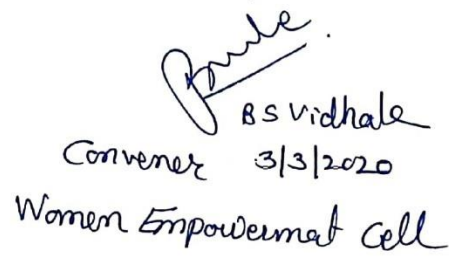 BS Vidhale
Convener 3/3/2020
Women Empowermat Cell